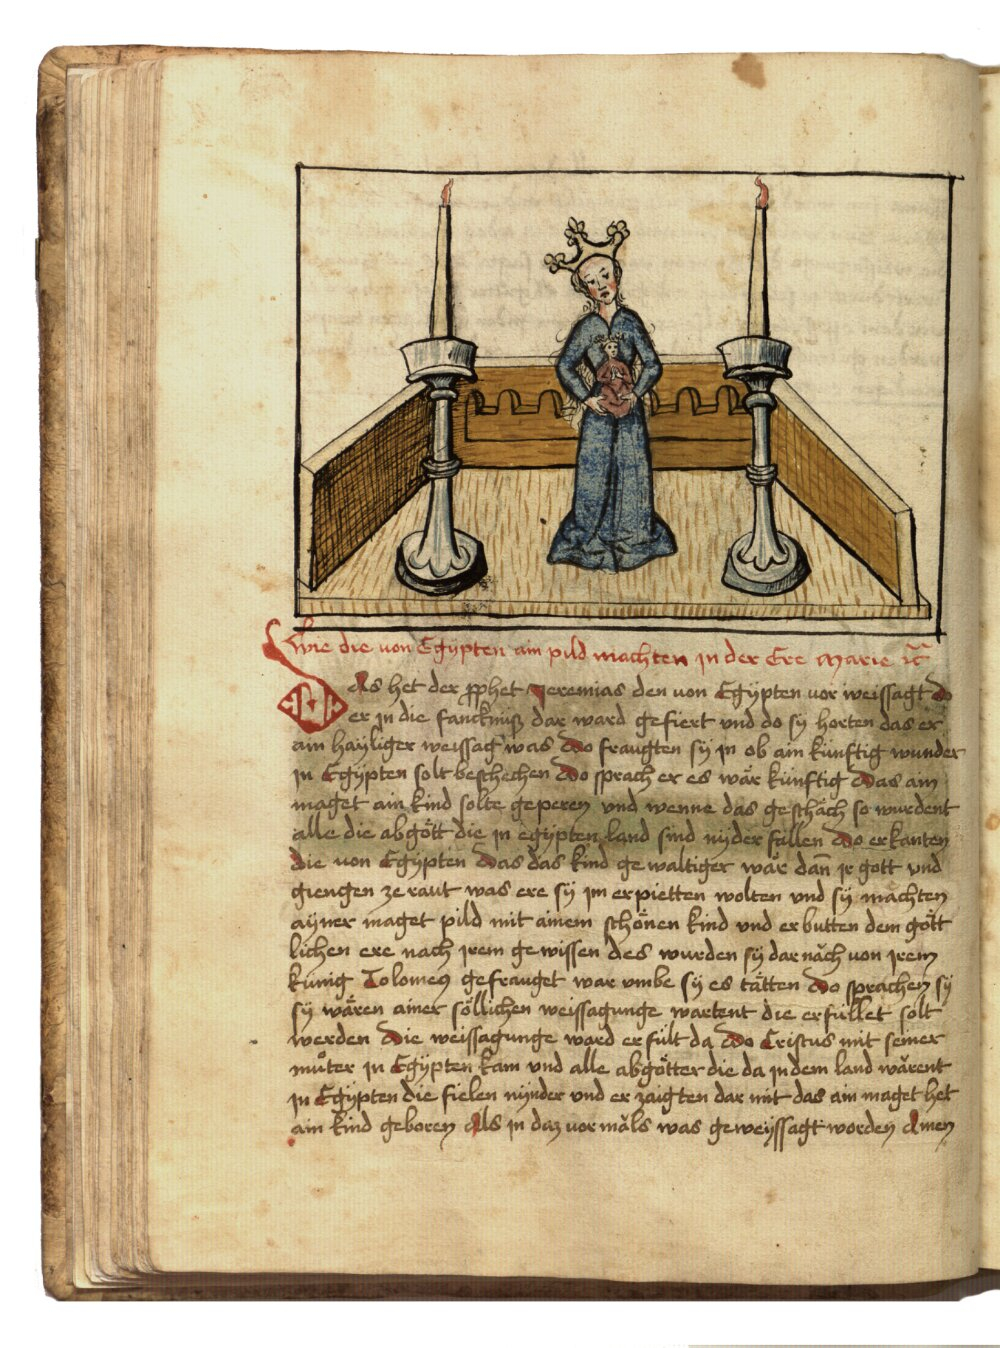 Wie die von Egÿpten ain pild machten jn der Ere Marie ꝛc̄
DAs het der ꝓphet Jeremias den von Egÿpten vor weissagt do
er jn die fancknüß dar ward gefiert vnd do sÿ horten das er
ain haÿliger weissag was do fraugten sÿ jn ob ain künftig wunder
jn Egÿpten solt beschechen Do sprach er es wär künftig das ain
maget ain kind solte geperen vnd wenne das geschäch so wurdent
alle die abgött die in egÿpten land sind nÿder fallen Do erkanten
die von Egÿpten das das kind gewaltiger wär dañ jr gott vnd
giengen ze raut was ere sÿ im erpietten wolten vnd sÿ machten
aÿner maget pild mit ainem schönen kind vnd erbutten dem gött
lichen ere nach jrem gewissen des wurden sÿ darnäch von jrem
künig Tolomeꝰ gefrauget war vmbe sÿ es tätten Do sprachen sÿ
sÿ wären ainer söllichen weissagunge wartent die erfüllet solt
werden Die weissagunge ward erfült da Do Cristus mit seiner
můter jn Egÿpten kam vnd alle abgötter die da jn dem land wärent
jn Egÿpten die fielen nÿnder vnd erzaigten dar mit das ain maget het
ain kind geboren Als in daz vormäls was geweÿssagt worden Amen